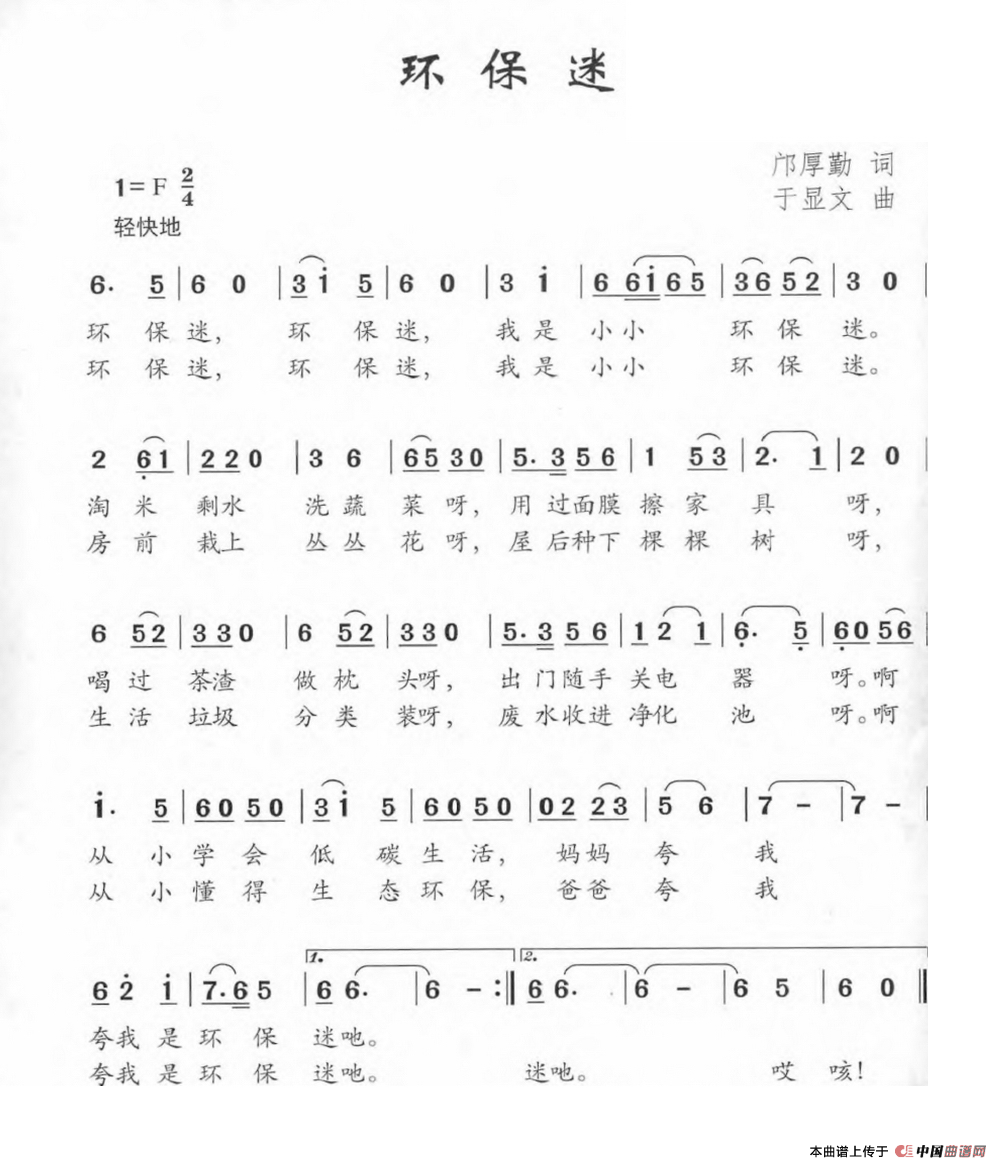 环保迷
邝厚勤 词
1=F 2/4
于显文 曲
轻快地
6. 5 | 6 0 | 3 i 5 | 6 0 | 3 i | 6 6 i 6 5 | 3 6 5 2 | 3 0 |
环 保 迷, 环 保 迷, 我 是 小 小 环 保 迷。
环 保 迷, 环 保 迷, 我 是 小 小 环 保 迷。
2 6̣ 1 | 2 2 0 | 3 6 | 6 5 3 0 | 5. 3 5 6 | 1 5 3 | 2. 1 | 2 0 |
淘 米 剩水 洗 蔬 菜 呀, 用 过面膜 擦 家 具 呀,
房 前 栽上 丛 丛 花 呀, 屋 后种下 棵 棵 树 呀,
6 5 2 | 3 3 0 | 6 5 2 | 3 3 0 | 5. 3 5 6 | 1 2 1 | 6̣. 5̣ | 6̣ 0 5 6 |
喝 过 茶渣 做 枕 头呀, 出 门随手 关电 器 呀。啊
生 活 垃圾 分 类 装呀, 废 水收进 净化 池 呀。啊
i. 5 | 6 0 5 0 | 3 i 5 | 6 0 5 0 | 0 2 2 3 | 5 6 | 7 - | 7 - |
从 小 学 会 低 碳 生 活, 妈妈 夸 我
从 小 懂 得 生 态 环 保, 爸爸 夸 我
1. 2.
6 2̇ i | 7. 6 5 | 6 6. | 6 - :‖ 6 6. | 6 - | 6 5 | 6 0 ‖
夸我 是 环 保 迷吔。
夸我 是 环 保 迷吔。 迷吔。 哎 咳!
本曲谱上传于 中国曲谱网